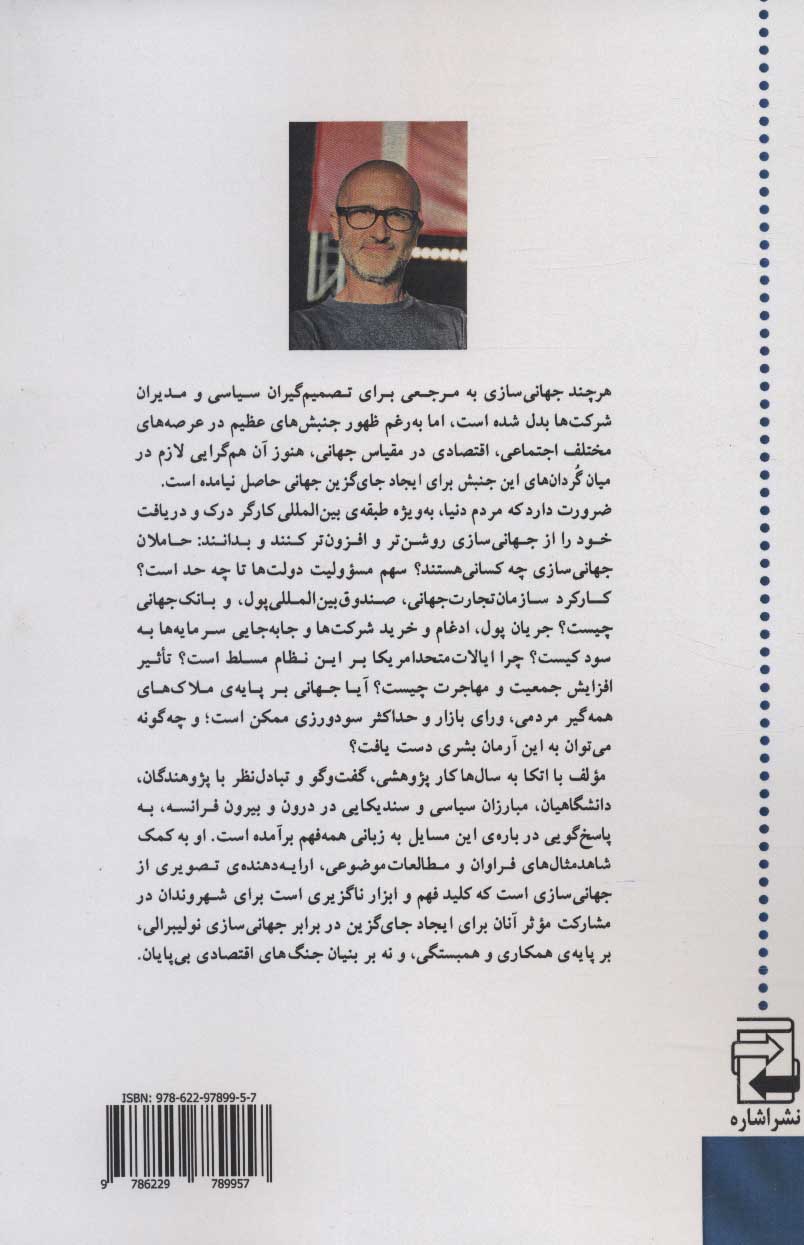 هرچند جهانی‌سازی به مرجعی برای تصمیم‌گیران سیاسی و مدیران
شرکت‌ها بدل شده است، اما به‌رغم ظهور جنبش‌های عظیم در عرصه‌های
مختلف اجتماعی، اقتصادی در مقیاس جهانی، هنوز آن هم‌گرایی لازم در
میان گُردان‌های این جنبش برای ایجاد جای‌گزین جهانی حاصل نیامده است.
ضرورت دارد که مردم دنیا، به‌ویژه طبقه‌ی بین‌المللی کارگر درک و دریافت
خود را از جهانی‌سازی روشن‌تر و افزون‌تر کنند و بدانند: حاملان
جهانی‌سازی چه کسانی‌هستند؟ سهم مسؤولیت دولت‌ها تا چه حد است؟
کارکرد سازمان‌تجارت‌جهانی، صندوق‌بین‌المللی‌پول، و بانک‌جهانی
چیست؟ جریان پول، ادغام و خرید شرکت‌ها و جابه‌جایی سرمایه‌ها به
سود کیست؟ چرا ایالات‌متحدامریکا بر این نظام مسلط است؟ تأثیر
افزایش جمعیت و مهاجرت چیست؟ آیا جهانی بر پایه‌ی ملاک‌های
همه‌گیر مردمی، ورای بازار و حداکثر سودورزی ممکن است؛ و چه‌گونه
می‌توان به این آرمان بشری دست یافت؟
مؤلف با اتکا به سال‌ها کار پژوهشی، گفت‌وگو و تبادل‌نظر با پژوهندگان،
دانشگاهیان، مبارزان سیاسی و سندیکایی در درون و بیرون فرانسه، به
پاسخ‌گویی در باره‌ی این مسایل به زبانی همه‌فهم برآمده است. او به کمک
شاهدمثال‌های فراوان و مطالعات‌موضوعی، ارایه‌دهنده‌ی تصویری از
جهانی‌سازی است که کلید فهم و ابزار ناگزیری است برای شهروندان در
مشارکت مؤثر آنان برای ایجاد جای‌گزین در برابر جهانی‌سازی نولیبرالی،
بر پایه‌ی همکاری و همبستگی، و نه بر بنیان جنگ‌های اقتصادی بی‌پایان.
نشراشاره
ISBN: 978-622-97899-5-7
9 786229 789957